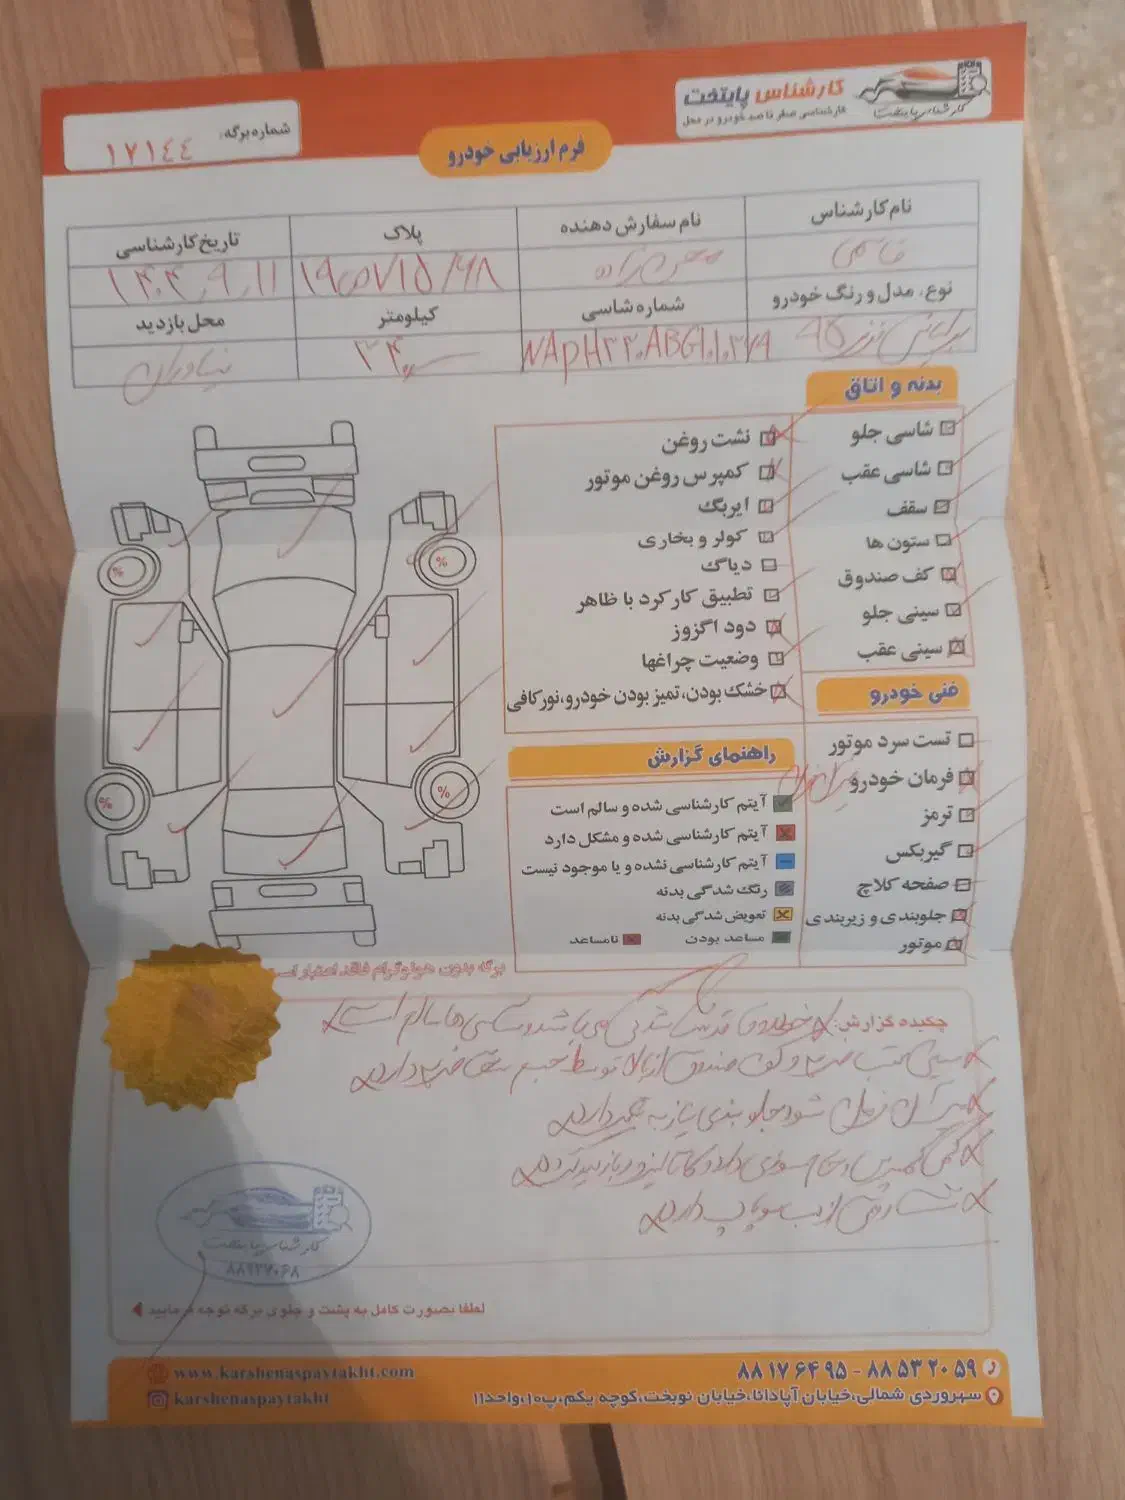 کارشناس پایتخت
کارشناسی صفر تا صد خودرو در محل
کارشناس پایتخت
شماره برگه:
۱۷۱٤٤
فرم ارزیابی خودرو
نام کارشناس
نام سفارش دهنده
پلاک
تاریخ کارشناسی
قاسمی
۱۹ ص ۷۱۵/۶۸
۱۴۰۴,۹,۱۱
نوع، مدل و رنگ خودرو
شماره شاسی
کیلومتر
محل بازدید
NAPH۳۲۰ABG۱۰۱۰۳۷۹
نیاوران
بدنه و اتاق
شاسی جلو
شاسی عقب
سقف
ستون ها
کف صندوق
سینی جلو
سینی عقب
نشت روغن
کمپرس روغن موتور
ایربگ
کولر و بخاری
دیاگ
تطبیق کارکرد با ظاهر
دود اگزوز
وضعیت چراغها
خشک بودن، تمیز بودن خودرو، نور کافی
فنی خودرو
تست سرد موتور
فرمان خودرو
ترمز
گیربکس
صفحه کلاچ
جلوبندی و زیربندی
موتور
راهنمای گزارش
آیتم کارشناسی شده و سالم است
آیتم کارشناسی شده و مشکل دارد
آیتم کارشناسی نشده و یا موجود نیست
رنگ شدگی بدنه
تعویض شدگی بدنه
مساعد بودن
نامساعد
%
%
%
%
برگه بدون هولوگرام فاقد اعتبار است
چکیده گزارش:
سینی عقب ضربه و کف صندوق از بالا توسط جسم سخت ضربه دارد
فرمان شود جلوبندی نیاز به تعمیر دارد
کمی کمپرس و خام سوزی دارد کاتالیزور بازدید گردد
نشت روغن از درب سوپاپ دارد
کارشناس پایتخت
۸۸۹۲۷۰۶۸
لطفا بصورت کامل به پشت و جلوی برگه توجه فرمایید
۸۸۱۷۶۴۹۵ - ۸۸۵۳۲۰۵۹
سهروردی شمالی، خیابان آپادانا، خیابان نوبخت، کوچه یکم، پ۱۰، واحد۱۱
www.karshenaspaytakht.com
karshenaspaytakht